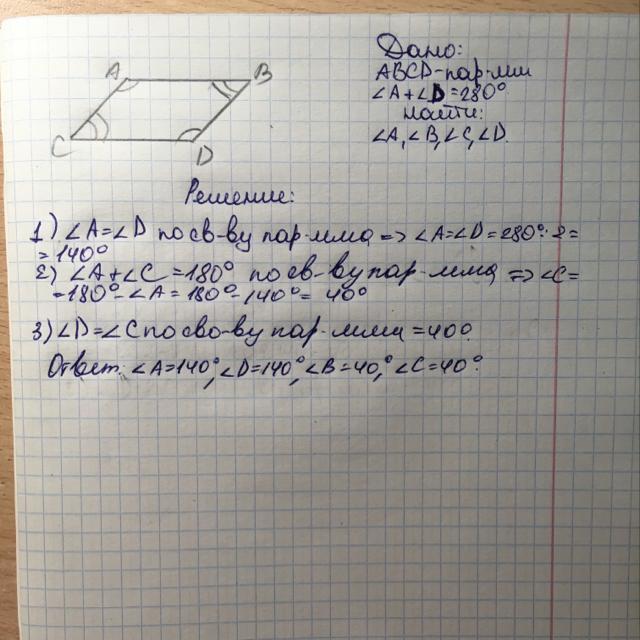 A
B
C
D
Дано:
ABCD-пар-мм
∠A+∠D=280°
Найти:
∠A,∠B,∠C,∠D.
Решение:
1) ∠A=∠D по св-ву пар-мма => ∠A=∠D=280°:2=
=140°
2) ∠A+∠C=180° по св-ву пар-мма => ∠C=
=180°-∠A=180°-140°=40°
3) ∠D=∠C по сво-ву пар-мма =40°.
Ответ: ∠A=140°, ∠D=140°, ∠B=40,° ∠C=40°.